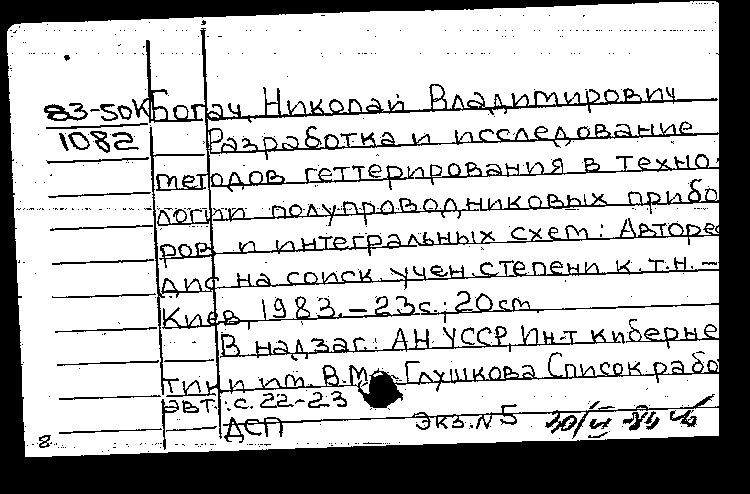 83-50К Богач, Николай Владимирович
1082 Разработка и исследование
методов геттерирования в техно-
логии полупроводниковых прибо
ров и интегральных схем: Авторе
дис на соиск. учен. степени к.т.н. —
Киев, 1983. — 23с.; 20см.
В надзаг.: АН УССР, Ин-т киберне
тики им. В.М. Глушкова Список рабо
авт.: с. 22-23
ДСП Экз. N 5
8